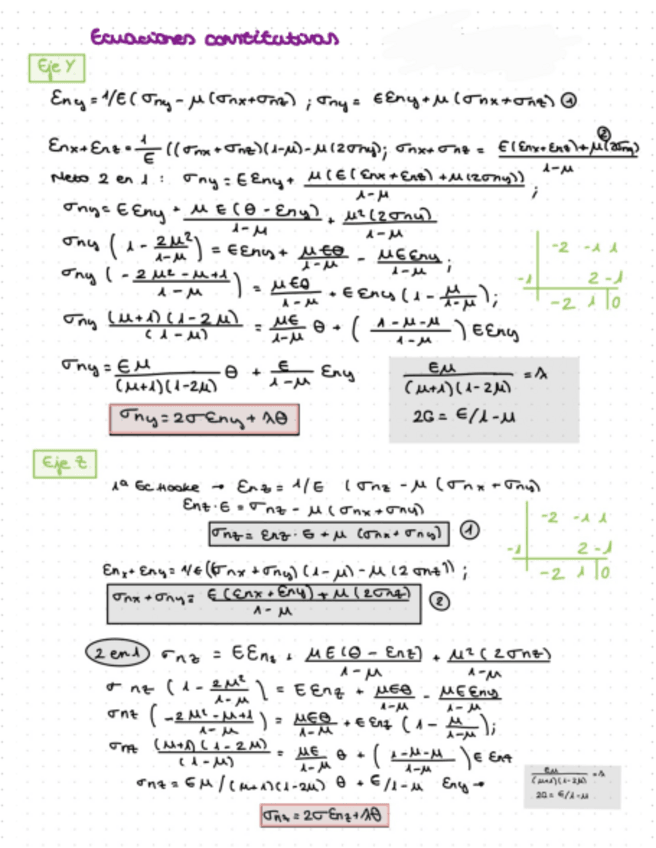 Ecuaciones constitutivas
Eje Y
Eny = 1/E (σny - μ(σnx+σnz) ; σny = EEny + μ(σnx+σnz) ①
Enx+Enz = 1/E ((σnx+σnz)(1-μ) - μ(2σny); σnx+σnz = E(Enx+Enz)+μ(2σny)/1-μ ②
Meto 2 en 1 : σny = EEny + μ(E(Enx+Enz)+μ(2σny))/1-μ ;
σny = EEny + μE(θ - Eny)/1-μ + μ²(2σny)/1-μ
σny (1 - 2μ²/1-μ) = EEny + μEθ/1-μ - μEEny/1-μ ;
σny (-2μ²-μ+1/1-μ) = μEθ/1-μ + EEny (1 - μ/1-μ);
σny (μ+1)(1-2μ)/(1-μ) = μE/1-μ θ + (1-μ-μ/1-μ) EEny
σny = Eμ/(μ+1)(1-2μ) θ + E/1-μ Eny
-2 -1 1
-1 2 -1
-2 1 |0
Eμ/(μ+1)(1-2μ) = λ
2G = E/1-μ
σny = 2σEny + λθ
Eje Z
1ª Ec Hooke → Enz = 1/E (σnz - μ(σnx+σny)
Enz·E = σnz - μ(σnx+σny)
σnz = Enz·E + μ(σnx+σny) ①
-2 -1 1
-1 2 -1
-2 1 |0
Enx+Eny = 1/E((σnx+σny)(1-μ) - μ(2σnz)) ;
σnx+σny = E(Enx+Eny)+μ(2σnz)/1-μ ②
2 en 1 σnz = EEnz + μE(θ - Enz)/1-μ + μ²(2σnz)/1-μ
σnz (1 - 2μ²/1-μ) = EEnz + μEθ/1-μ - μEEny/1-μ
σnz (-2μ²-μ+1/1-μ) = μEθ/1-μ + EEnz (1 - μ/1-μ);
σnz (μ+1)(1-2μ)/(1-μ) = μE/1-μ θ + (1-μ-μ/1-μ) E Enz
σnz = Eμ/(μ+1)(1-2μ) θ + E/1-μ Eny →
Eμ/(μ+1)(1-2μ) = λ
2G = E/1-μ
σnz = 2σEnz + λθ